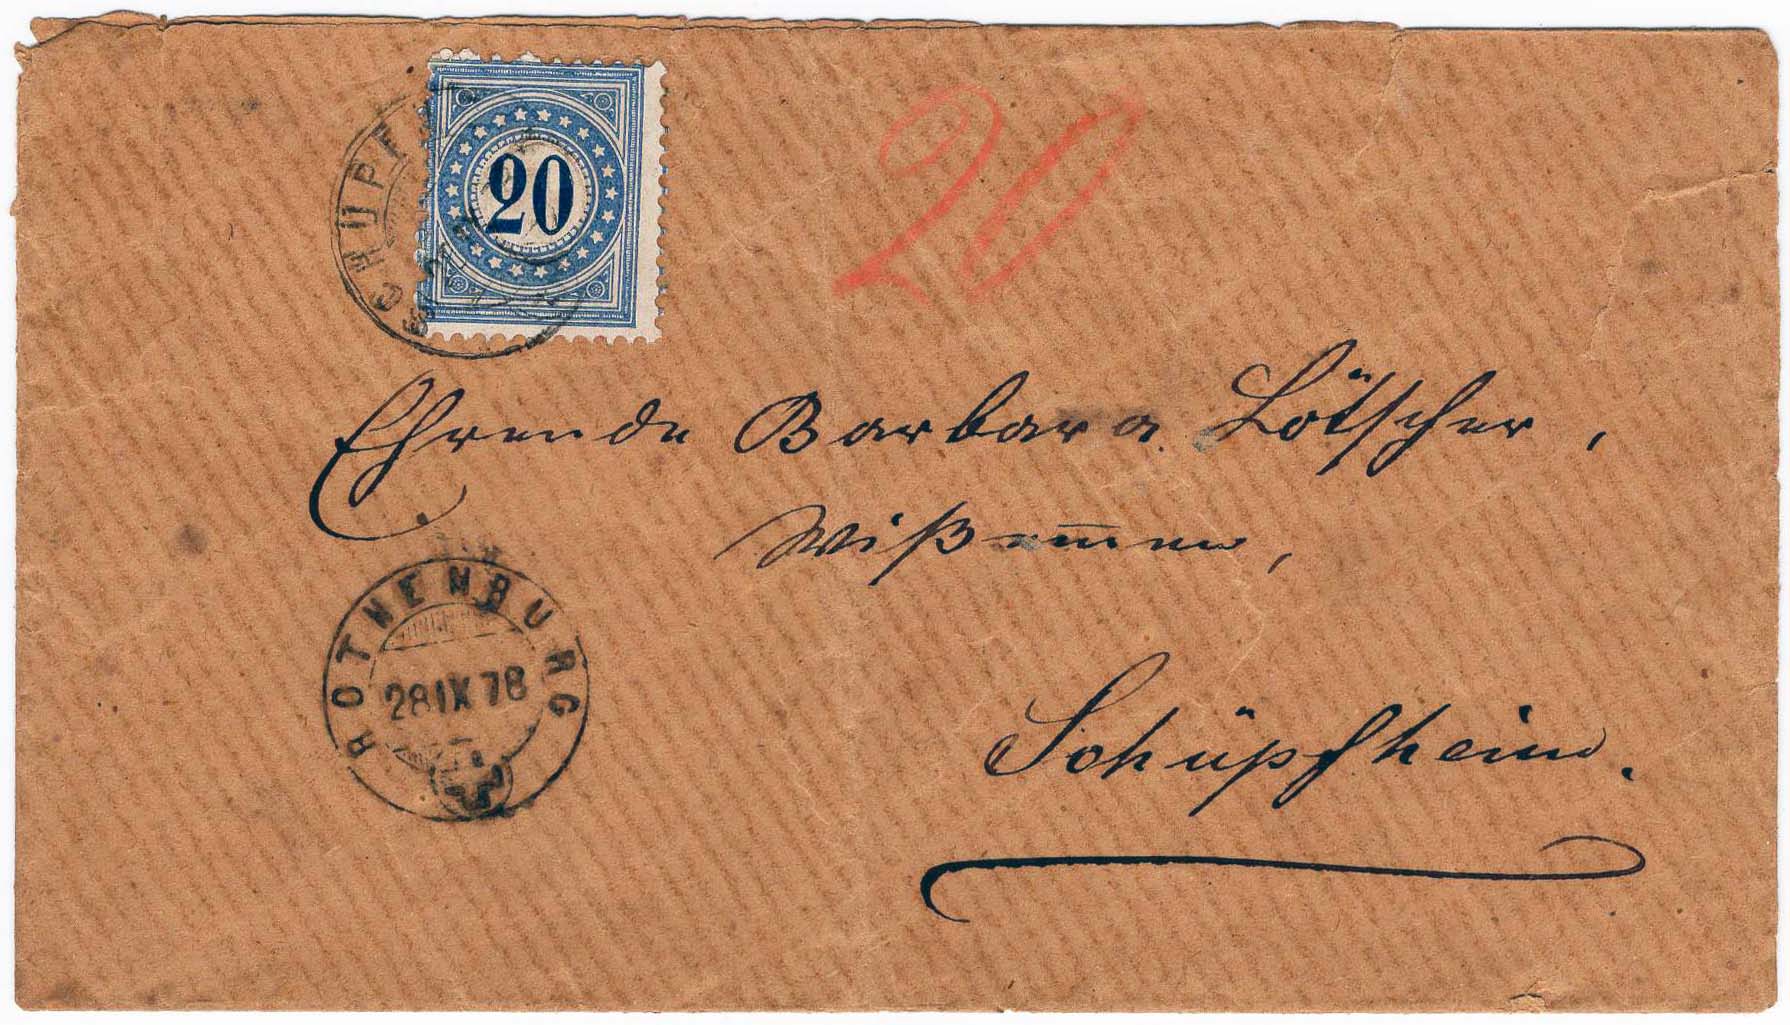 SCHÜPF
20
20
Ehrende Barbara Lötscher,
Wißem̅en,
Schüpfheim.
ROTHENBURG
28 IX 78